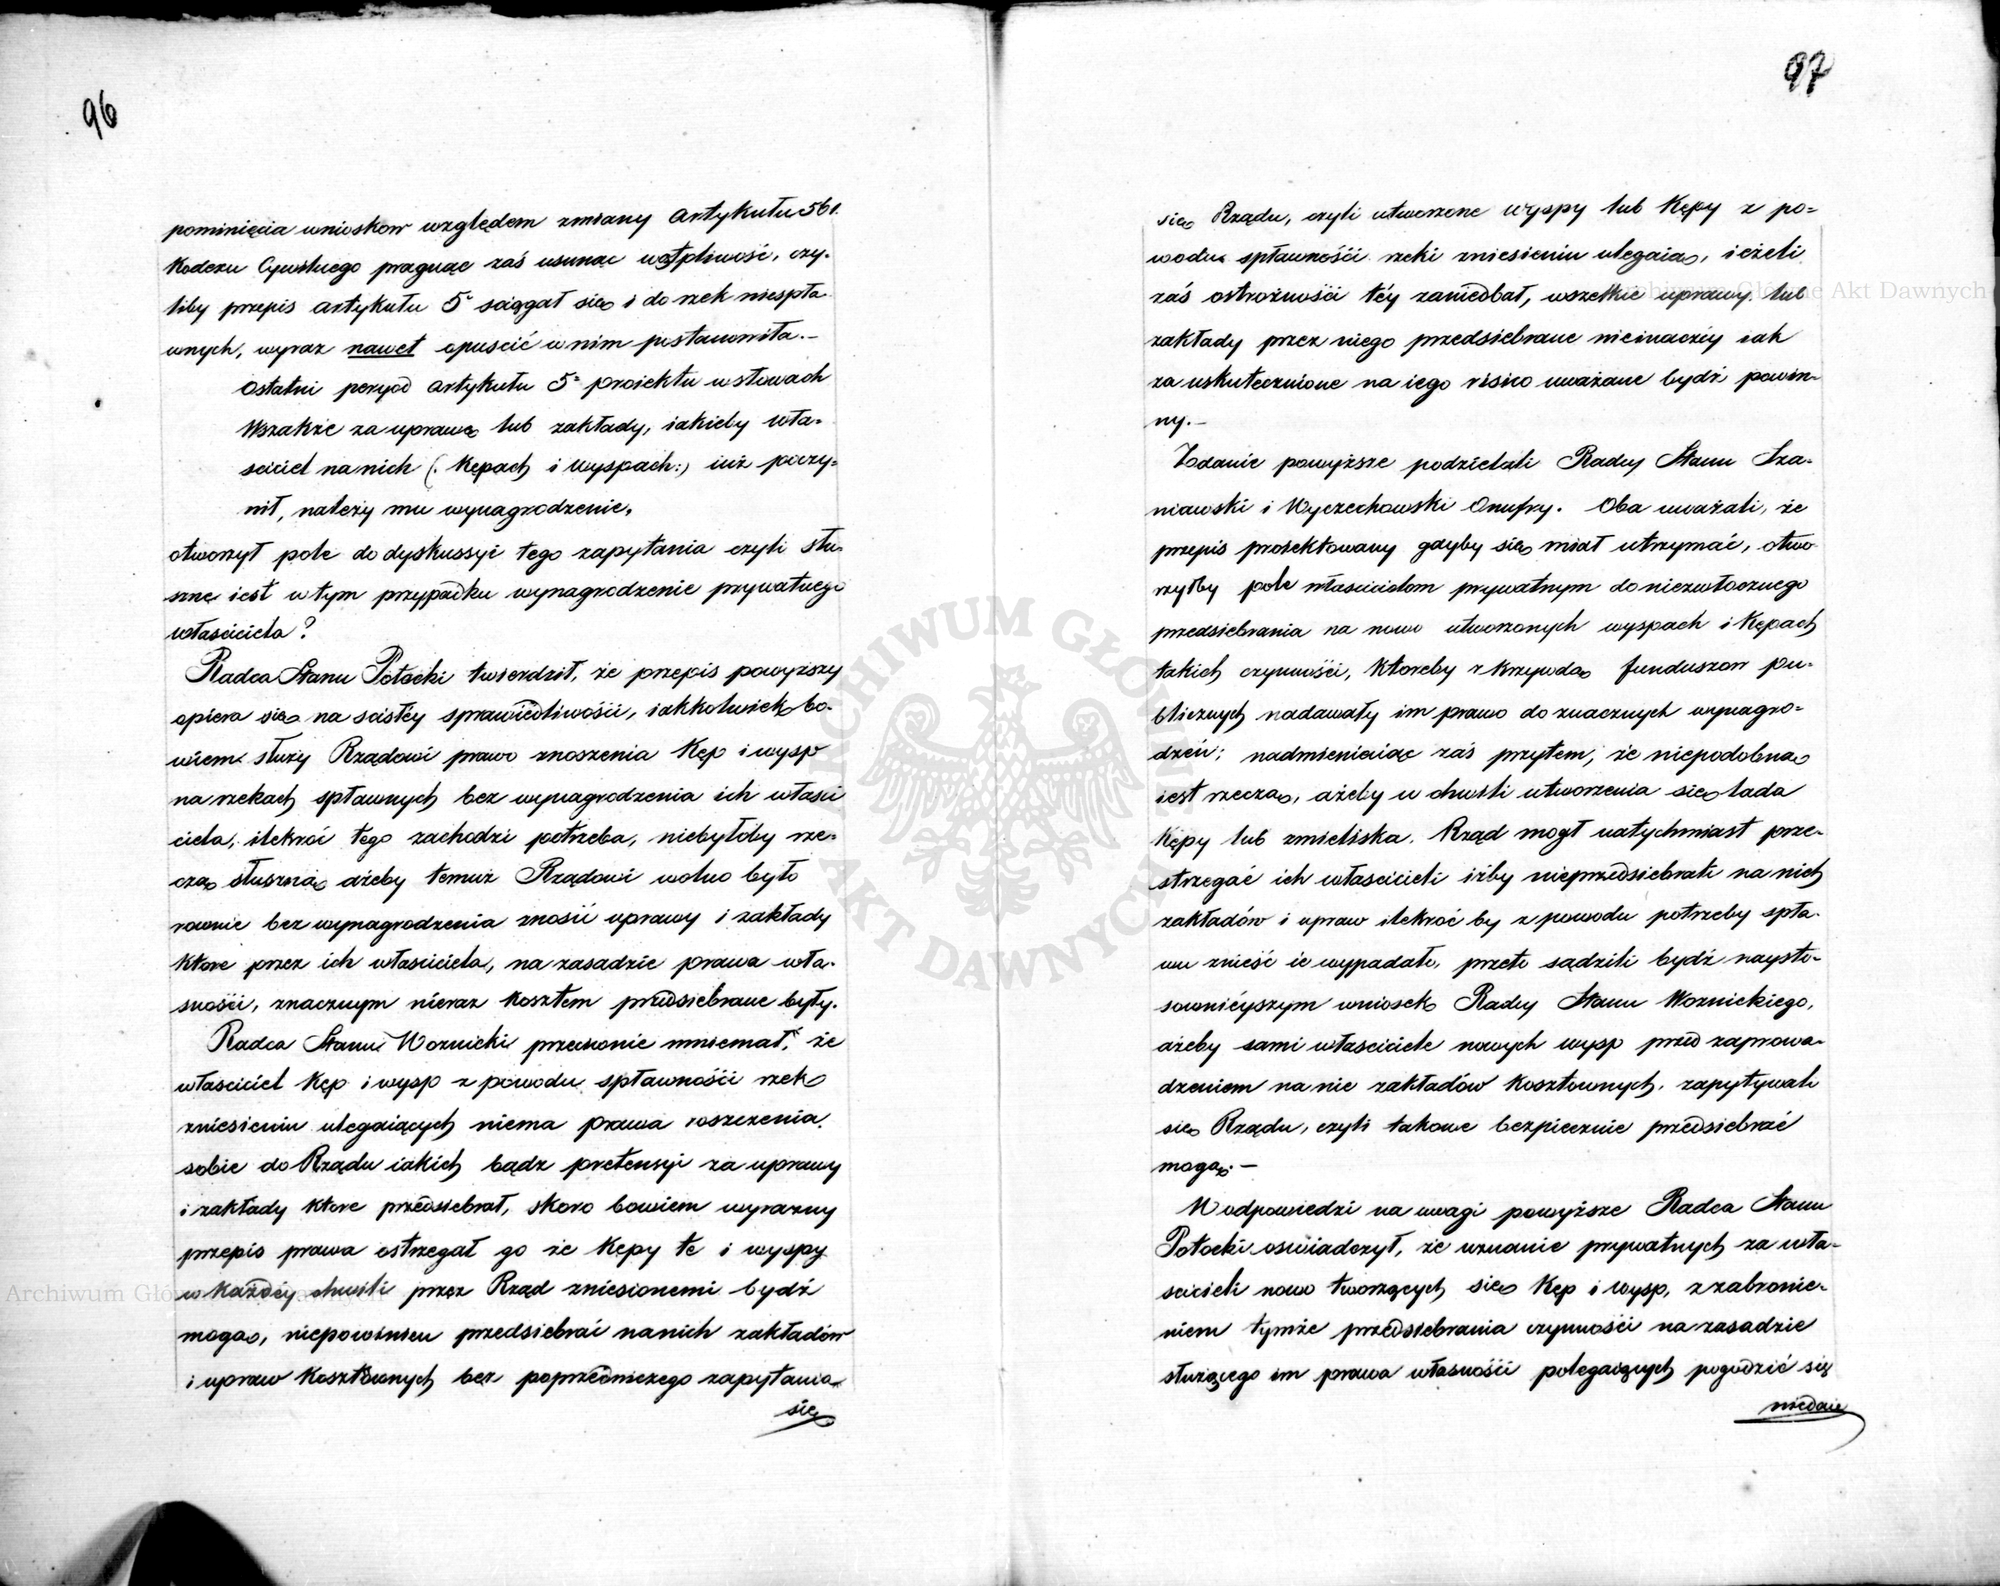 96
pominięcia wnioskow względem zmiany Artykułu 561.
Kodexu Cywilnego pragnąc zaś usunąc wątpliwość, czy-
liby przepis artykułu 5º sciągał się i do rzek niespła-
wnych, wyraz nawet opuscić w nim postanowiła.–
Ostatni peryod Artykułu 5º proiektu w słowach
Wszakże za uprawę lub zakłady, iakieby wła-
sciciel na nich (: Kępach i wyspach:) iuż poczy-
nił, należy mu wynagrodzenie,
otworzył pole do dyskussyi tego zapytania czyli słu-
szne iest w tym przypadku wynagrodzenie prywatnego
własciciela?
Radca Stanu Potocki twierdził, że przepis powyższy
opiera się na scisłéy sprawiedliwości, iakkolwiek bo-
wiem służy Rządowi prawo znoszenia Kęp i wysp
na rzekach spławnych bez wynagrodzenia ich własci
ciela, ilekroć tego zachodzi potrzeba, niebyłoby rze-
czą słuszną ażeby temuż Rządowi wolno było
rownie bez wynagrodzenia znosić uprawy i zakłady
które przez ich własciciela, na zasadzie prawa wła-
sności, znacznym nieraz kosztem przedsiebrane były.
Radca Stanu Woznicki przeciwnie mniemał, że
własciciel Kęp i wysp z powodu spławności rzek
zniesieniu ulegaiących niema prawa roszczenia
sobie do Rządu iakich bądz pretensyi za uprawy
i zakłady ktore przedsiebrał, skoro bowiem wyrazny
przepis prawa ostrzegał go że Kępy te i wyspy
w każdéy chwili przez Rząd zniesionemi bydź
mogą, niepowinien przedsiebrać na nich zakładów
i upraw kosztownych bez poprzedniczego zapytania
się
97
się Rządu, czyli utworzone wyspy lub Kępy z po-
wodu spławności rzeki zniesieniu ulegaią, ieżeli
zaś ostrożności téy zaniedbał, wszelkie uprawy lub
zakłady przez niego przedsiebrane nieinaczéy iak
za uskutecznione na iego risico uważane bydź powin-
ny.–
Zdanie powyższe podzielali Radcy Stanu Sza-
niawski i Wyczechowski Onufry. Oba uważali, że
przepis proiektowany gdyby się miał utrzymać, otwo-
rzyłby pole włascicielom prywatnym do niezwłocznego
przedsiebrania na nowo utworzonych wyspach i Kępach
takich czynności, któreby z krzywdą funduszow pu-
blicznych nadawały im prawo do znacznych wynagro-
dzeń; nadmieniaiąc zaś przytem, że niepodobną
iest rzeczą, ażeby w chwili utworzenia się lada
Kępy lub zmieliska, Rząd mogł natychmiast prze-
strzegać ich włascicieli iżby nieprzedsiebrali na nich
zakładów i upraw ilekroć by z powodu potrzeby spła-
wu znieść ie wypadało, przeto sądzili bydź naysto-
sownieyszym wniosek Radcy Stanu Woznickiego,
ażeby sami własciciele nowych wysp przed zaprowa-
dzeniem na nie zakładów kosztownych, zapytywali
się Rządu, czyli takowe bezpiecznie przedsiebrać
mogą.–
W odpowiedzi na uwagi powyższe Radca Stanu
Potocki oswiadczył, że uznanie prywatnych za wła-
scicieli nowo tworzących się Kęp i wysp, z zabronie-
niem tymże przedsiebrania czynności na zasadzie
służącego im prawa własności polegaiących pogodzić się
niedaie
Archiwum Główne Akt Dawnych
ARCHIWUM GŁÓWNE AKT DAWNYCH
Archiwum Główne Akt Dawnych